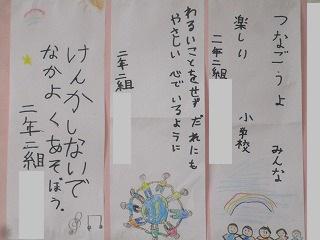 つなごうよ みんな
楽しい 小学校
二年二組
わるいことをせず だれにも
やさしい 心で いるように
二年二組
けんかしないで
なかよくあそぼう。
二年二組